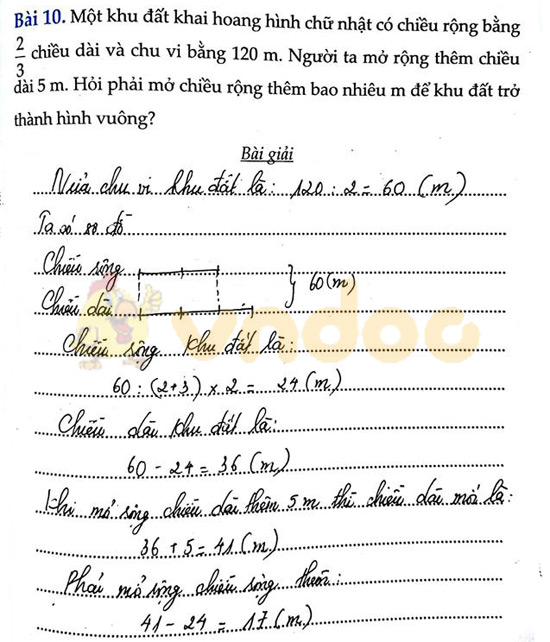 Bài 10. Một khu đất khai hoang hình chữ nhật có chiều rộng bằng
2/3 chiều dài và chu vi bằng 120 m. Người ta mở rộng thêm chiều
dài 5 m. Hỏi phải mở chiều rộng thêm bao nhiêu m để khu đất trở
thành hình vuông?
Bài giải
Nửa chu vi khu đất là: 120 : 2 = 60 (m)
Ta có sơ đồ
Chiều rộng
60 (m)
Chiều dài
vndoc
Chiều rộng khu đất là:
60 : (2+3) x 2 = 24 (m)
Chiều dài khu đất là:
60 - 24 = 36 (m)
Khi mở rộng chiều dài thêm 5 m thì chiều dài mới là:
36 + 5 = 41 (m)
Phải mở rộng chiều rộng thêm:
41 - 24 = 17 (m)